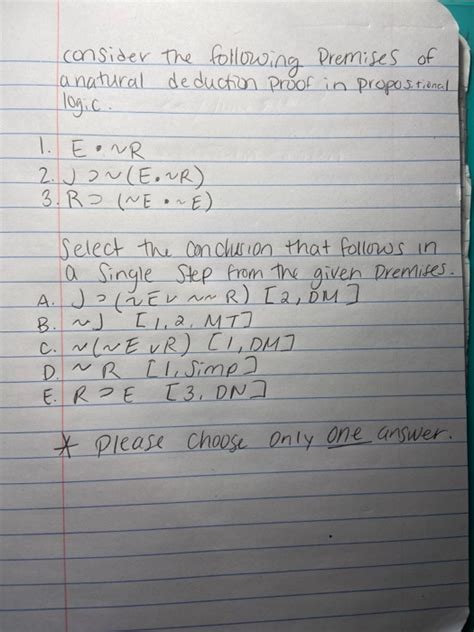 consider the following Premises of
a natural deduction proof in propositional
logic.
1. E • ~R
2. J ⊃ ~(E • ~R)
3. R ⊃ (~E • ~E)
Select the conclusion that follows in
a Single Step from the given Premises.
A. J ⊃ (~E v ~~R) [2, DM]
B. ~J [1, 2, MT]
C. ~(~E v R) [1, DM]
D. ~R [1, Simp]
E. R ⊃ E [3, DN]
* please choose only one answer.